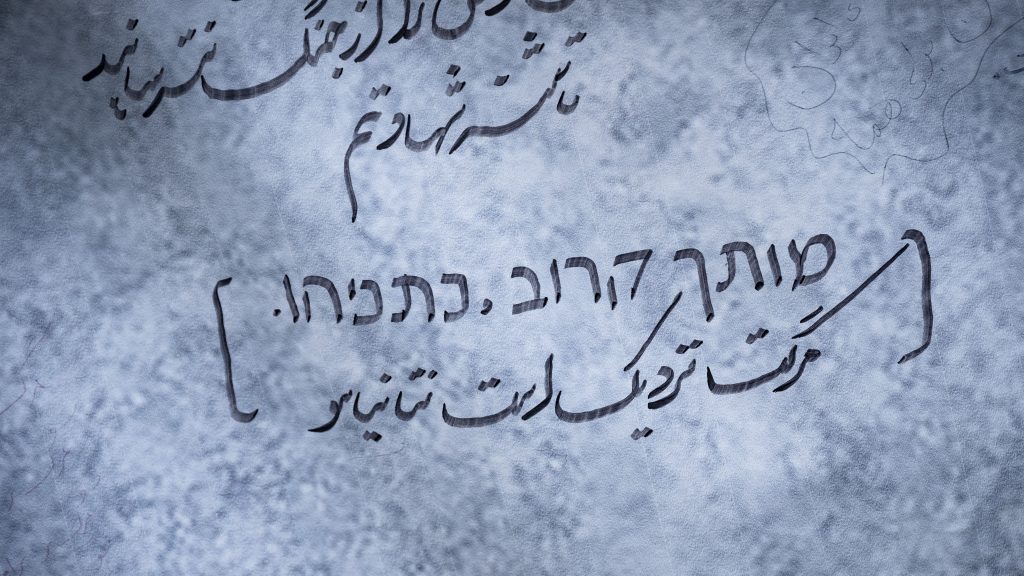 را از جنگ نترسانید
ما تشنه شهادتیم
[מותך קרוב. כתכיהו.
مرگت نزدیک است نتانیاهو]